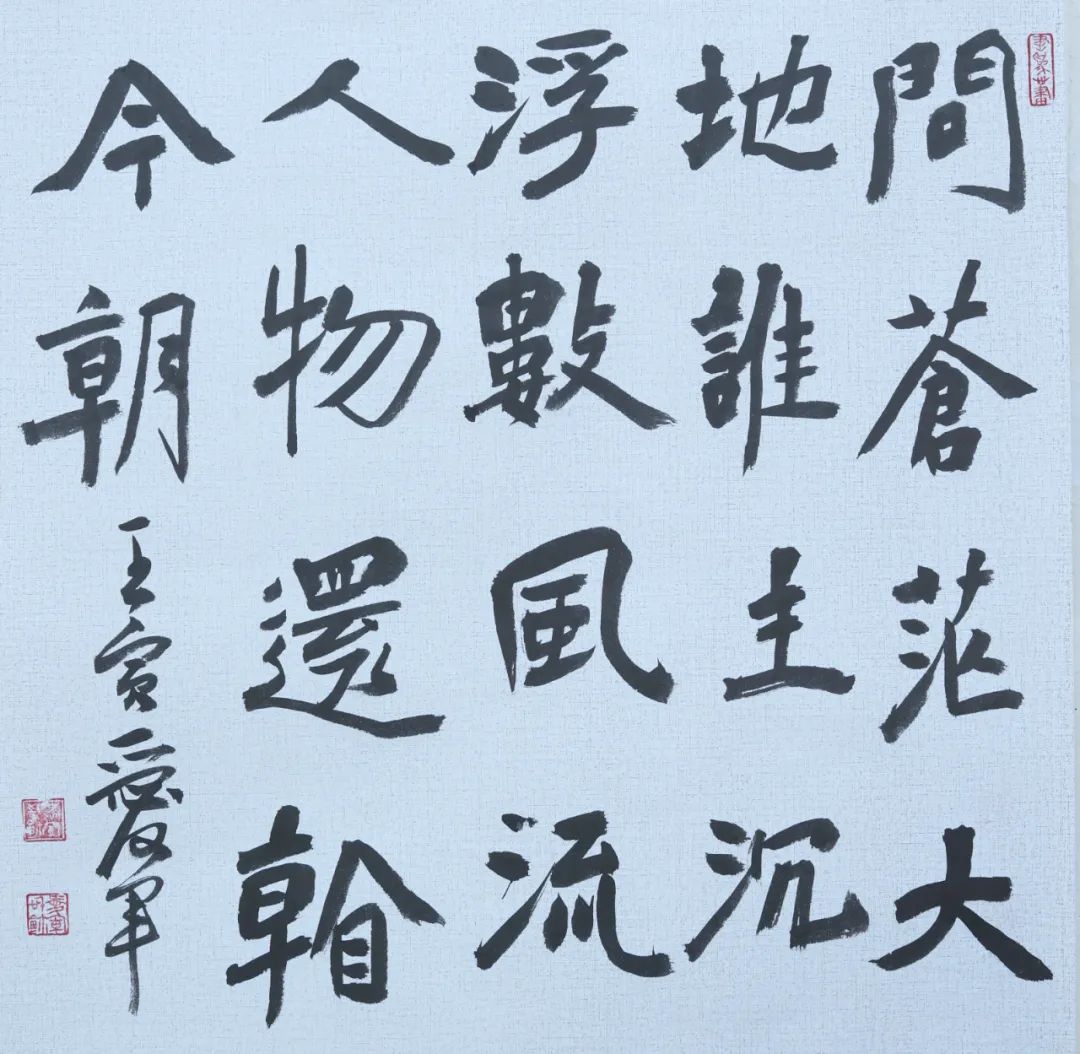 問蒼茫大
地誰主沉
浮數風流
人物還看
今朝
壬寅愛軍